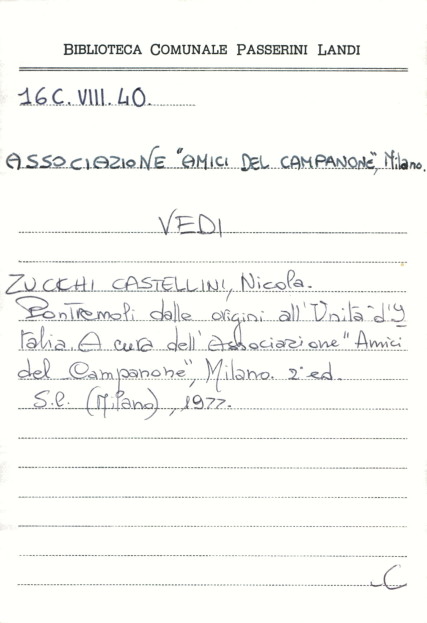 BIBLIOTECA COMUNALE PASSERINI LANDI
16C. VIII. 40.
ASSOCIAZIONE "AMICI DEL CAMPANONE", Milano.
VEDI
ZUCCHI CASTELLINI, Nicola.
Pontremoli dalle origini all'Unità d'I
talia. A cura dell'Associazione "Amici
del Campanone", Milano. 2ª ed.
S.l. (Milano), 1977.
C